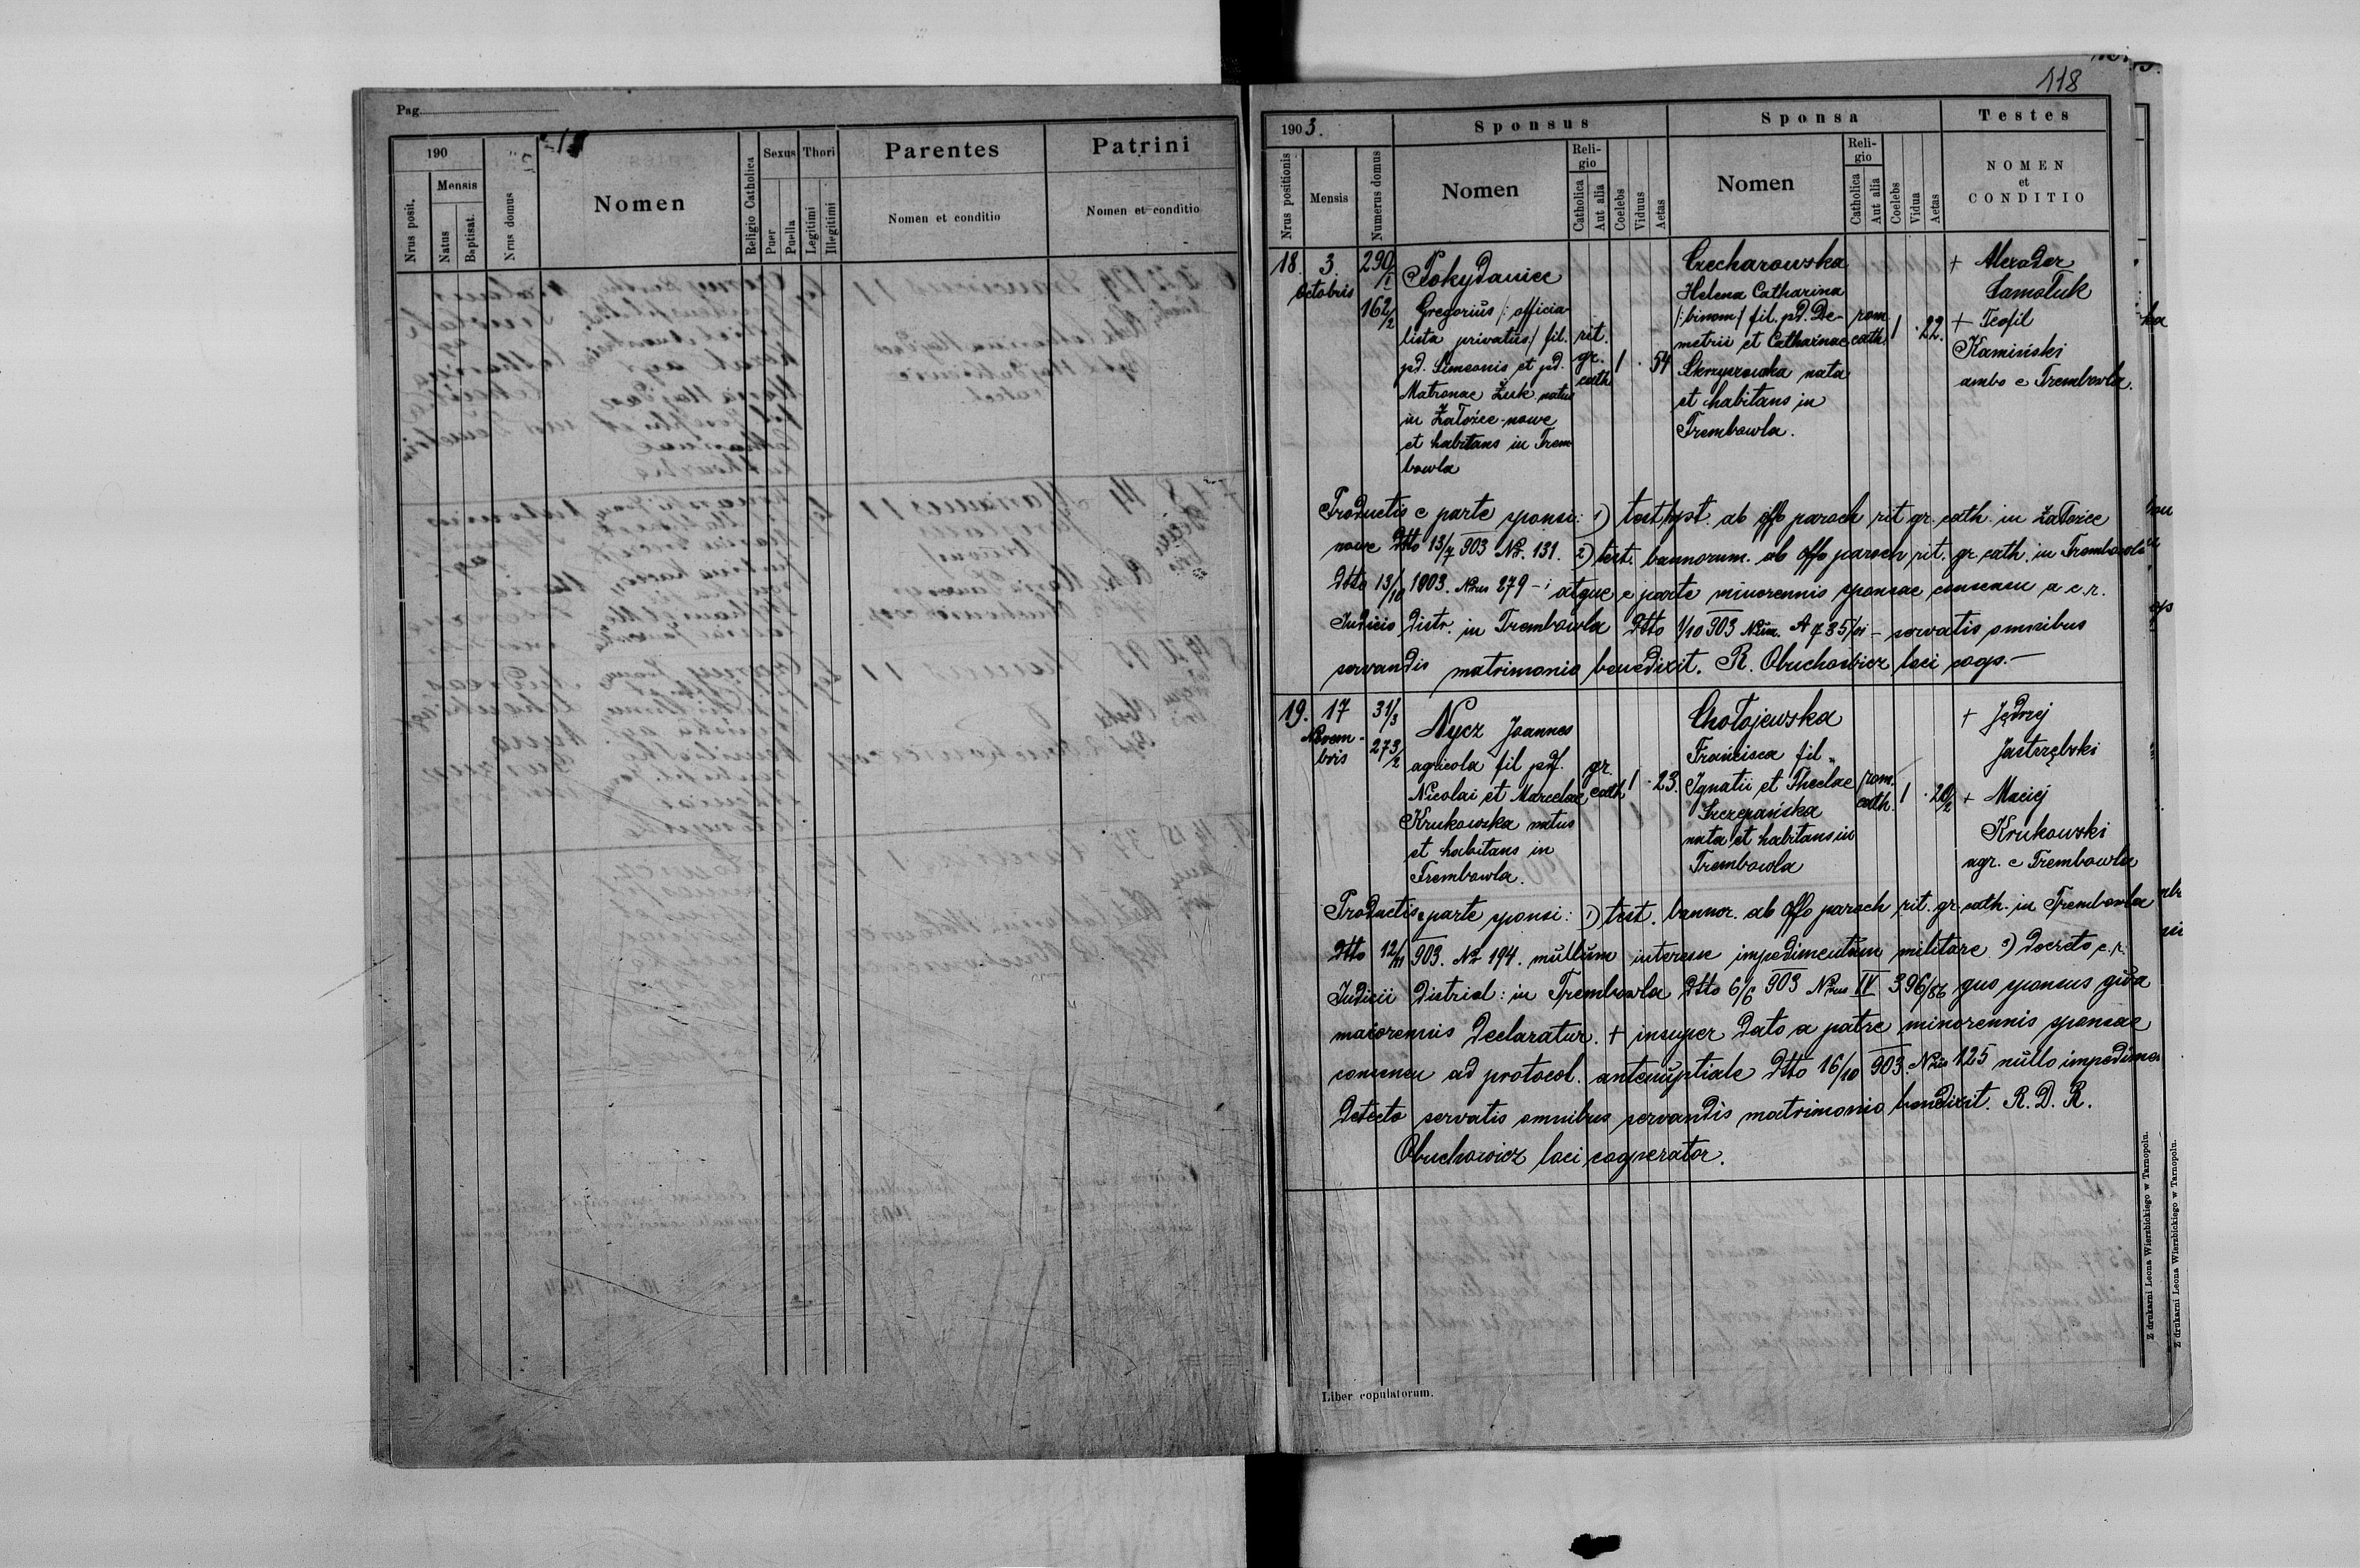 Pag.
190
Nrus posit.
Mensis
Natus
Baptisat.
Nrus domus
Nomen
Religio Catholica
Sexus
Puer
Puella
Thori
Legitimi
Illegitimi
Parentes
Nomen et conditio
Patrini
Nomen et conditio
118
1903.
Sponsus
Sponsa
Testes
Nrus positionis
Mensis
Numerus domus
Nomen
Reli-
gio
Catholica
Aut alia
Coelebs
Viduus
Aetas
Nomen
Reli-
gio
Catholica
Aut alia
Coelebs
Vidua
Aetas
NOMEN
et
CONDITIO
18.
3.
Octobris
290/1
162/2
Pokydaniec
Gregorius /: officia-
lista privatus/ fil.
pd. Simeonis et pd.
Matronae Żuk natus
in Załoźce-nowe
et habitans in Trem
bowla
rit.
gr.
cath
1
54
Czecharowska
Helena Catharina
/:binom/ fil. pd. De-
metrii et Catharinae
Skrzyszowska nata
et habitans in
Trembowla.
rom.
cath.
1
22.
+ Alexader
Samoluk
+ Teofil
Kamiński
ambo e Trembowla.
Productis e parte sponsi: 1) test. bapt. ab offo paroch rit gr. cath. in Załoźce
nowe Dtto 13/7 903 Nr. 131. 2) test. bannorum. ab offo paroch rit. gr. cath. in Trembowla
Dtto 13/10 1903. Nrus 279 - atque e parte minorennis sponsae consensu a c.r.
Judicio Distr. in Trembowla Dtto 1/10 903 Num. A 735/01 - servatis omnibus
servandis matrimonio benedixit. R. Obuchowicz loci coop.-
19.
17
Novem-
bris
31/3
273/2
Nycz Joannes
agricola fil pdf.
Nicolai et Marcelae
Krukowska natus
et habitans in
Trembowla.
gr.
cath
1
23.
Chołojewska
Francisca fil.
Ignatii et Theclae
Szczepańska
nata et habitans in
Trembowla
rom.
cath.
1
20/2
+ Jędrzej
Jastrzębski
+ Maciej
Krukowski
agr. e Trembowla
Productis e parte sponsi: 1) test. bannor. ab offo paroch rit. gr. cath. in Trembowla
Dtto 12/11 903. Nr 194. nullum interesse impedimentum militare 2) decreto c. r.
Judicii District: in Trembowla Dtto 6/6 903 Nrus IV 396/86 quo sponsus qua
maiorennis declaratur. + insuper dato a patre minorennis sponsae
consensu ad protocol. antenuptiale Dtto 16/10 903. Nrus 125 nullo impedimen
detecto servatis omnibus servandis matrimonio benedixit. R. D. R.
Obuchowicz loci cooperator.
Liber copulatorum.
Z drukarni Leona Wierzbickiego w Tarnopolu.
Z drukarni Leona Wierzbickiego w Tarnopolu.